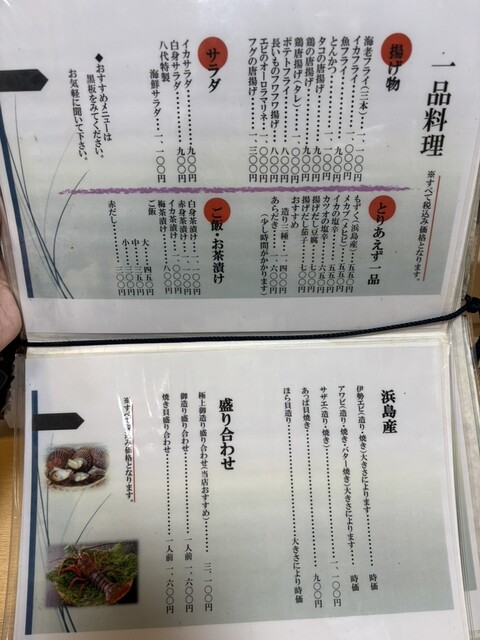 一品料理
※すべて税込み価格となります。
揚げ物
海老フライ(三本)・一、一〇〇円
イカフライ
魚フライ
とんかつ
タコの唐揚げ
鶏の唐揚げ
鶏唐揚げ(タレ)
ポテトフライ
長いものフワフワ揚げ・八〇〇円
エビのオーロラマリネ・
フグの唐揚げ・・・一、三〇〇円
サラダ
イカサラダ・・・・・・九〇〇円
白身サラダ・・・・・・九〇〇円
八代特製
海鮮サラダ・・一、一〇〇円
◆おすすめメニューは
黒板をみてください。
お気軽に聞いて下さい。
とりあえず一品
もずく(浜島産)・・五五〇円
メカブ(メヒビ)・・・五五〇円
イカの塩辛・・・・・五五〇円
カツオの塩辛
揚げだし豆腐
揚げだし茄子
おすすめ
造り三種
あらだき・・・一、六〇〇円
(少し時間がかかります)
ご飯・お茶漬け
白身茶漬け
赤身茶漬け
イカ茶漬け
梅茶漬け
ご飯
大・・四五〇円
中・・三五〇円
小・・
赤だし・・・・・三〇〇円
浜島産
伊勢エビ(造り・焼き)大きさによります・・・時価
アワビ(造り・焼き・バター焼き)大きさによります・・時価
サザエ(造り・焼き)・・・一、一〇〇円
あっぱ貝焼き・・・九〇〇円
ほら貝造り・・・大きさにより時価
盛り合わせ
極上御造り盛り合わせ(当店おすすめ)・・・三、一〇〇円
御造り盛り合わせ・・・一人前 一、六〇〇円
焼き貝盛り合わせ・・・一人前 一、六〇〇円
※すべて税込み価格となります。